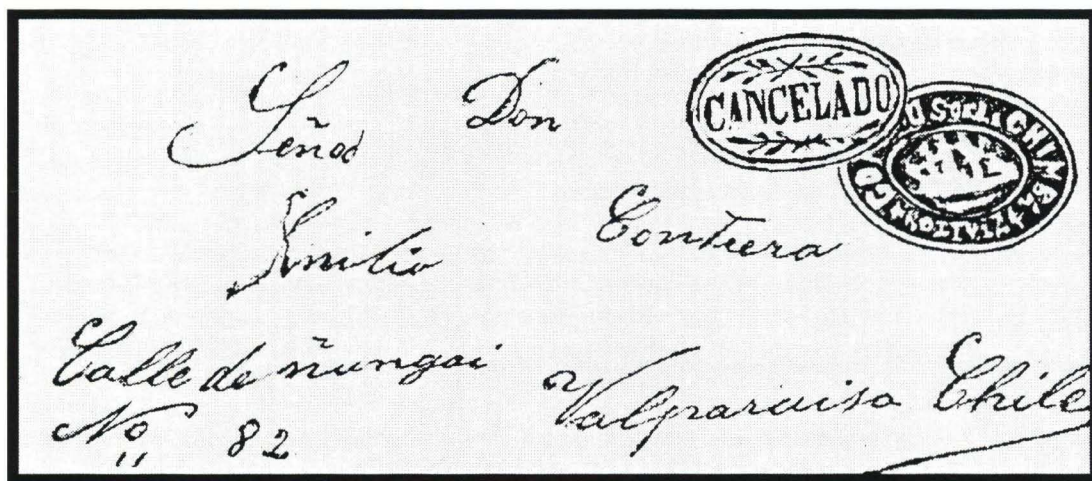 Señor Don
CANCELADO
Emilio Contrera
Calle de ñungai
Valparaiso Chile
No 82